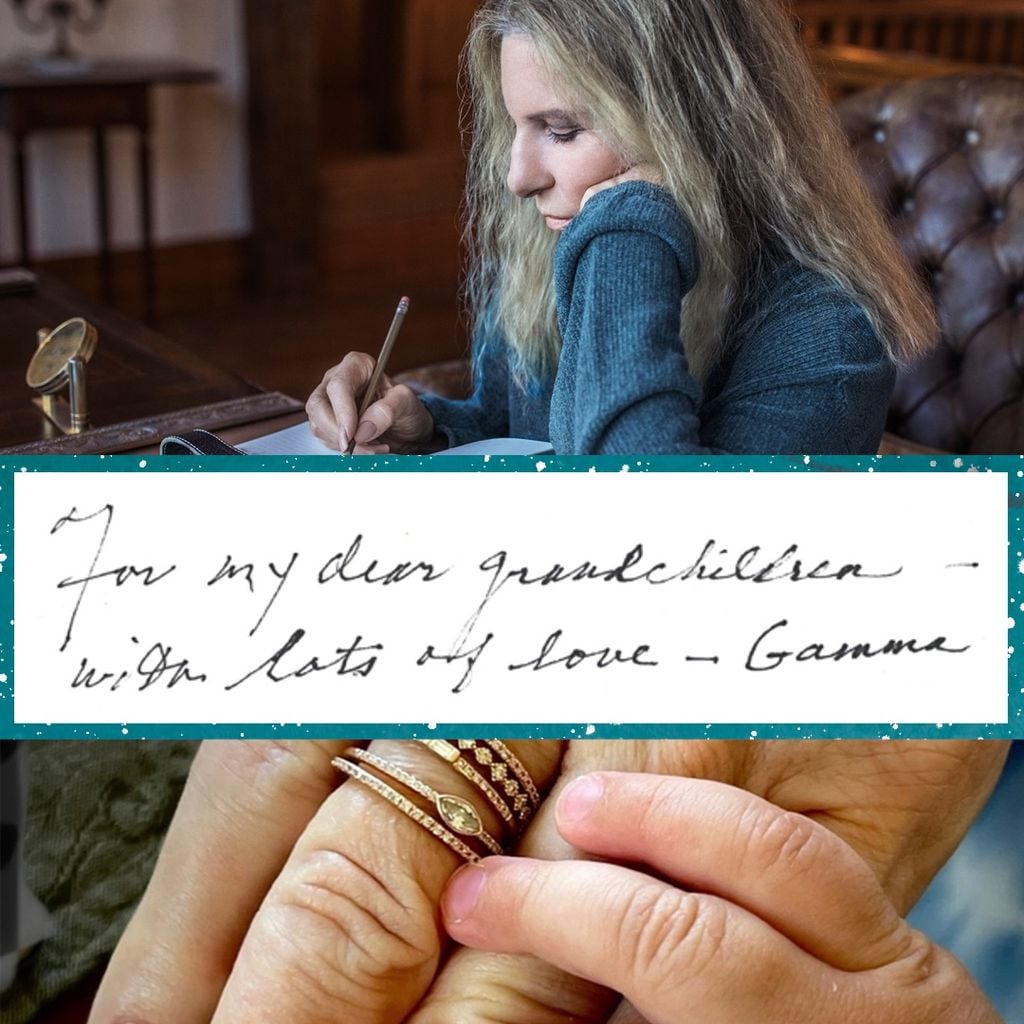 For my dear grandchildren –
with lots of love – Gamma